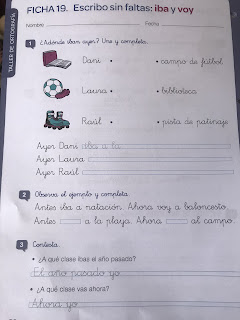 TALLER DE ORTOGRAFÍA
FICHA 19. Escribo sin faltas: iba y voy
Nombre Fecha
1 ¿Adónde iban ayer? Une y completa.
Dani • • campo de fútbol
Laura • • biblioteca
Raúl • • pista de patinaje
Ayer Dani iba a la
Ayer Laura
Ayer Raúl
2 Observa el ejemplo y completa.
Antes iba a natación. Ahora voy a baloncesto.
Antes a la playa. Ahora al campo.
3 Contesta.
• ¿A qué clase ibas el año pasado?
El año pasado yo
• ¿A qué clase vas ahora?
Ahora yo